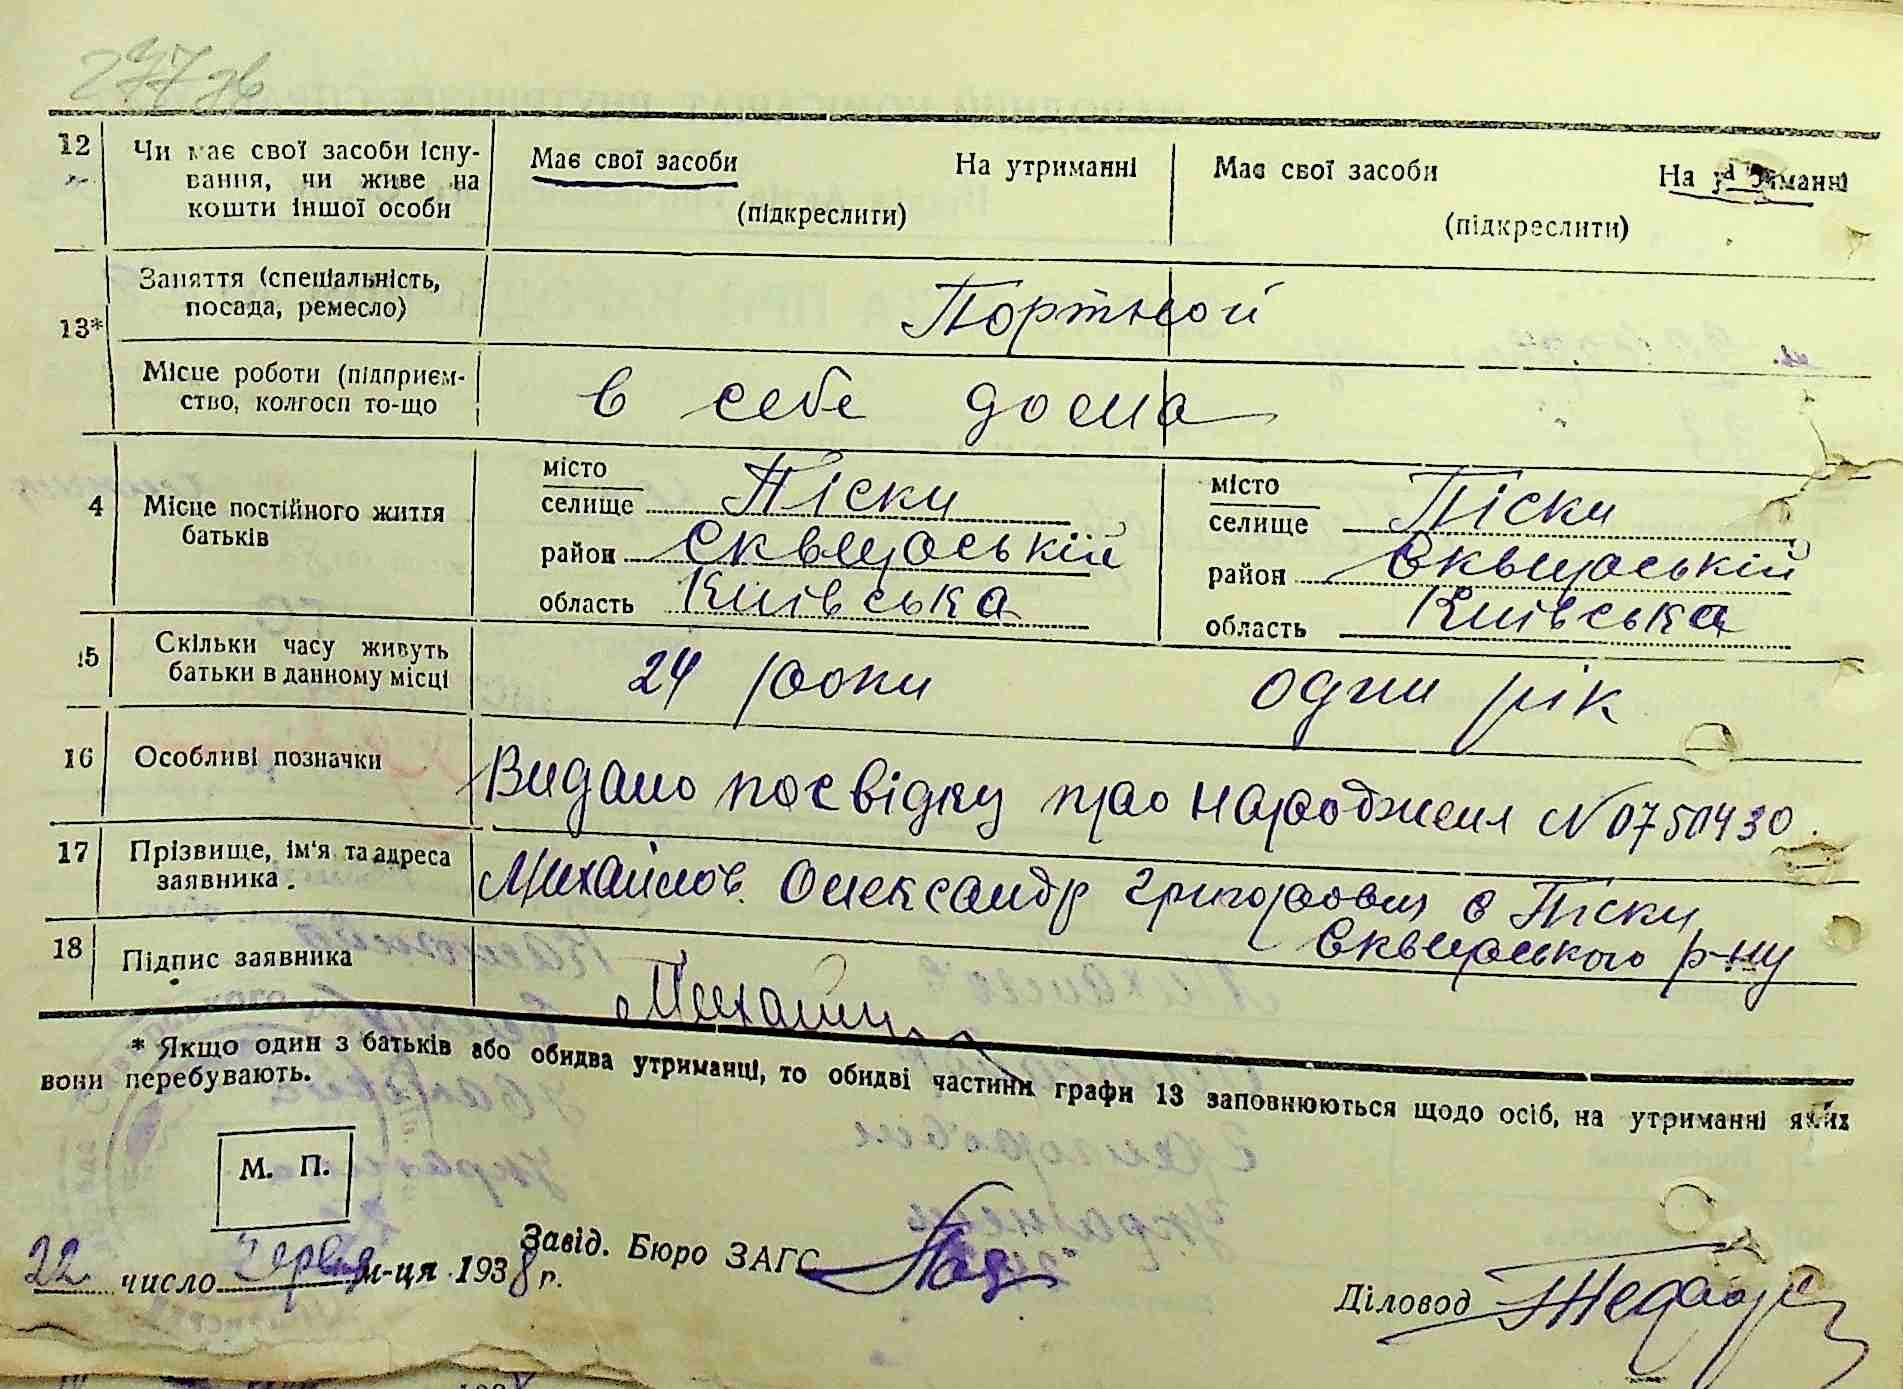 277 зв
12 Чи має свої засоби існу-
вання, чи живе на
кошти іншої особи
Має свої засоби На утриманні
(підкреслити)
Має свої засоби На утриманні
(підкреслити)
13* Заняття (спеціальність,
посада, ремесло)
Портной
Місце роботи (підприєм-
ство, колгосп то-що
в себе дома
4 Місце постійного життя
батьків
місто
селище Піски
район Сквирській
область Київська
місто
селище Піски
район Сквирській
область Київська
15 Скільки часу живуть
батьки в данному місці
24 роки один рік
16 Особливі позначки
Видано посвідку про народженя N 0750430.
17 Прізвище, ім'я та адреса
заявника.
Михайлов Олександр Григорович с Піски
Сквирського р-ну
18 Підпис заявника
Михайл
* Якщо один з батьків або обидва утриманці, то обидві частини графи 13 заповнюються щодо осіб, на утриманні яких
вони перебувають.
М. П.
22 число Червня м-ця 1938 р.
Завід. Бюро ЗАГС
Діловод